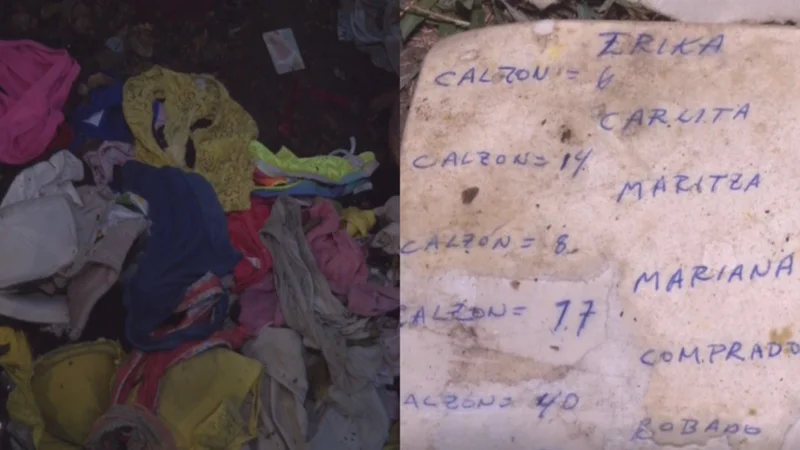 ERIKA
CALZON = 6
CARLITA
CALZON = 14
MARITZA
CALZON = 8
MARIANA
CALZON = 17
COMPRADO
ALZON = 40
ROBADO